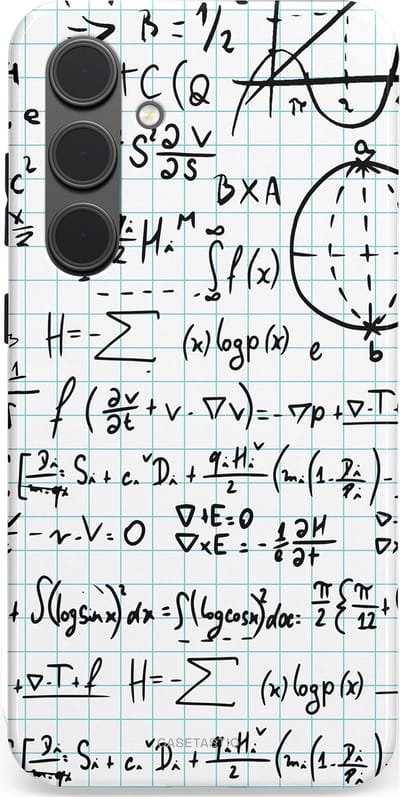 → B = 1/2
+ C (Q
e
S² ∂V/∂S
π 2
c²
a
B × A
x/2
Hᵢᴹ
∫ f(x)
∞
-∞
b
H = - ∑ (x) log p(x) e
f (∂v/∂t + v · ∇v) = - ∇p + ∇·T +
[Dᵢ Sᵢ + cᵢ Dᵢ + qᵢHᵢ/2 (mᵢ(1 - Dᵢ/Pᵢ) -
V = 0
∇+E = 0
∇×E = - 1/e ∂H/∂t
+ ∫(log sin x)² dx = ∫(log cos x)² dx = π/2 {π/12 +
+ ∇·T + f H = - ∑ (x) log p(x) —
[Dᵢ Sᵢ + cᵢ Dᵢ + qᵢHᵢ/2 (mᵢ(1 - Dᵢ/Pᵢ)
CASETASTIC